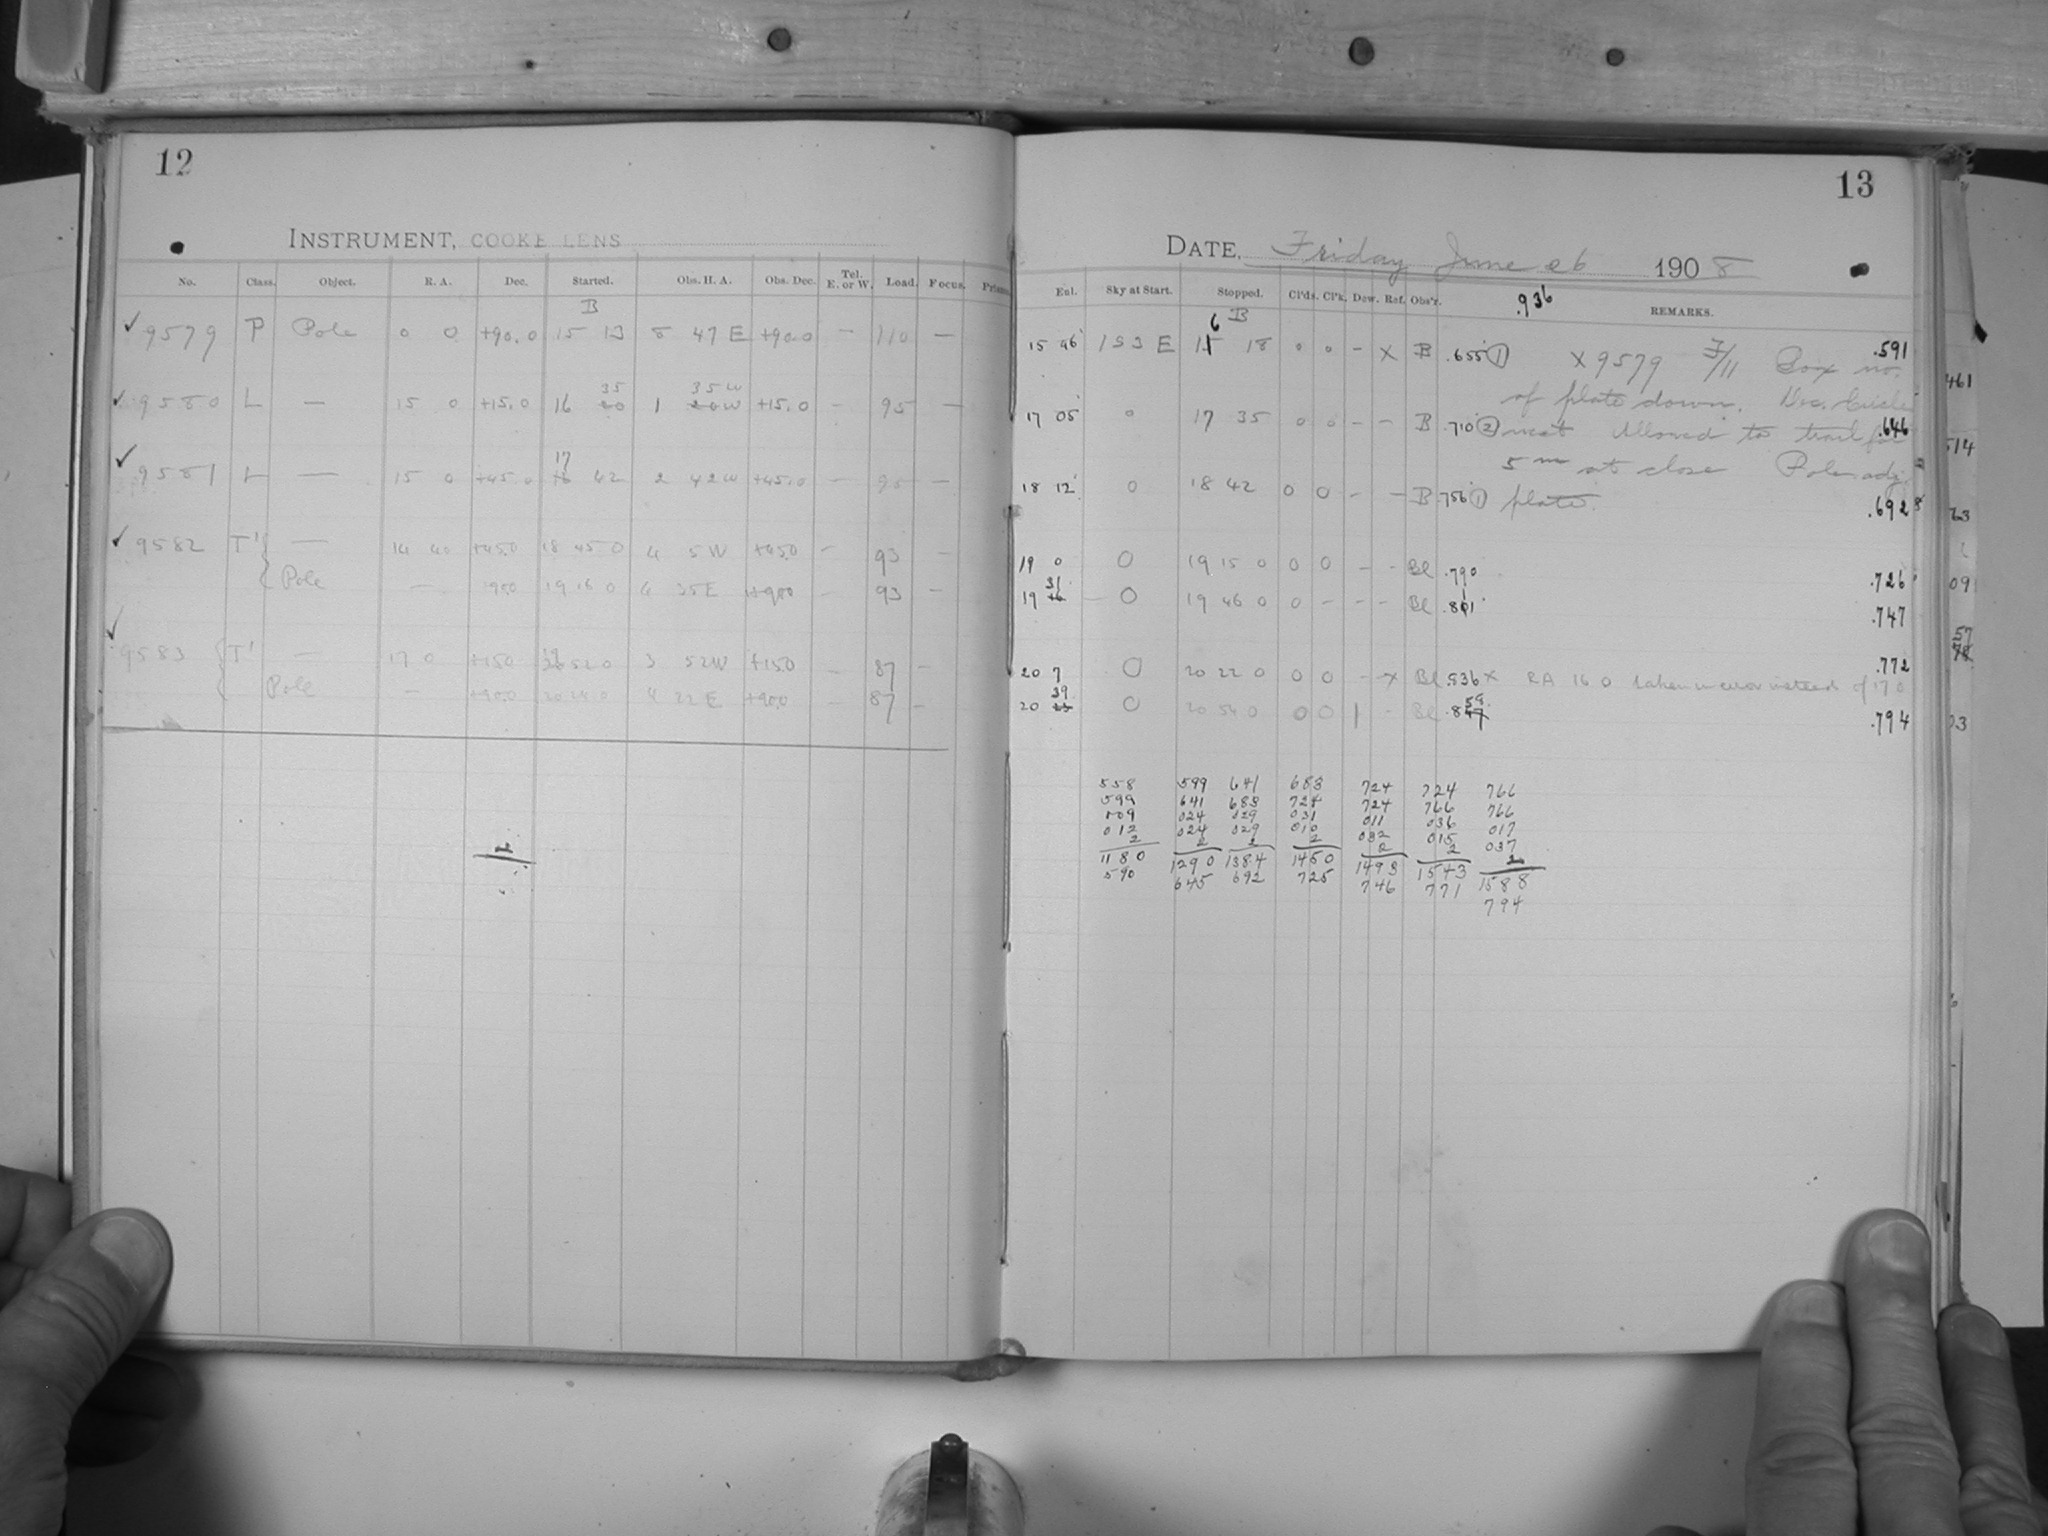 12
INSTRUMENT, COOKE LENS
No. Class. Object. R. A. Dec. Started. Obs. H. A. Obs. Dec. Tel. E. or W. Load. Focus. Prisms.
B
✓ 9579 P Pole 0 0 +90.0 15 13 8 47 E +90.0 – 110 –
35 35 W
✓ 9580 L — 15 0 +15.0 16 20 1 20 W +15.0 – 95 –
17
✓ 9581 L — 15 0 +45.0 16 42 2 42 W +45.0 – 95 –
✓ 9582 T' { — 14 40 +45.0 18 45 0 4 5 W +45.0 – 93 –
Pole — +90.0 19 16 0 4 35 E +90.0 – 93 –
✓ 9583 { T' — 17 0 +15.0 19 52 0 3 52 W +15.0 – 87 –
Pole — +90.0 20 24 0 4 22 E +90.0 – 87 –
2
13
DATE, Friday June 26 1908
Enl. Sky at Start. Stopped. Cl'ds. Cl'k. Dew. Ref. Obs'r. .936 REMARKS.
6 B
15 46 153 E 15 18 0 0 – X B .655 (1) X 9579 F/11 Box no. .591
of plate down. Dec. Circle
17 05 0 17 35 0 0 – – B .710 (2) west Allowed to trail for .646
5 m at close Pole adj.
18 12 0 18 42 0 0 – – B .756 (1) plate. .692
19 0 0 19 15 0 0 0 – – Bl .790 .726
31
19 16 0 19 46 0 0 – – – Bl .811 .747
20 7 0 20 22 0 0 0 – X Bl .836 X RA 16 0 taken in error instead of 17 0 .772
39
20 0 20 54 0 0 0 1 – Bl .859 .794
558 599 641 683 724 724 766
599 641 683 724 724 766 766
009 024 029 031 011 036 017
012 024 029 010 032 015 037
2 2 2 2 2 2 2
1180 1290 1384 1450 1493 1543 1588
590 645 692 725 746 771 794